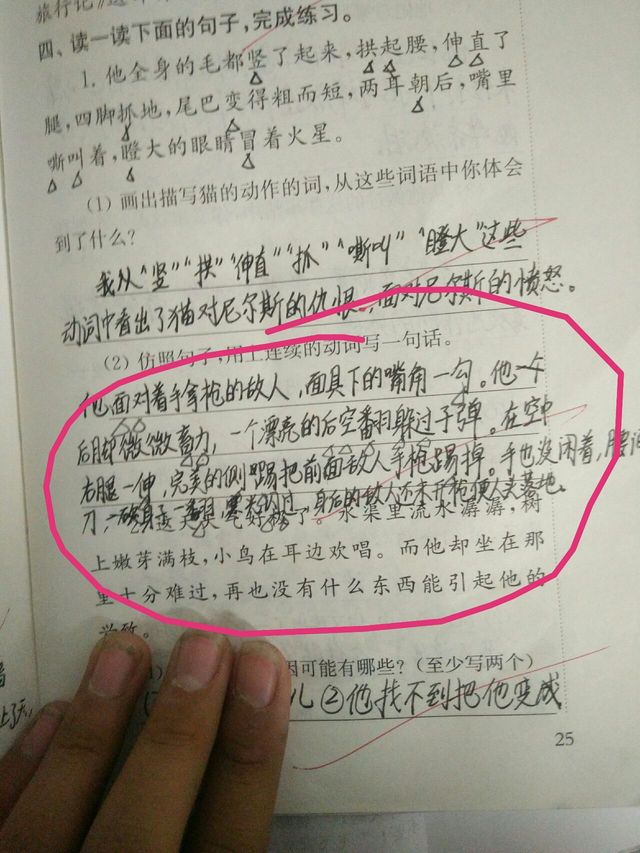 旅行记》
四、读一读下面的句子,完成练习。
1. 他全身的毛都竖了起来,拱起腰,伸直了
腿,四脚抓地,尾巴变得粗而短,两耳朝后,嘴里
嘶叫着,瞪大的眼睛冒着火星。
(1) 画出描写猫的动作的词,从这些词语中你体会
到了什么?
我从“竖”“拱”“伸直”“抓”“嘶叫”“瞪大”这些
动词中看出了猫对尼尔斯的仇恨,面对尼尔斯的愤怒。
(2) 仿照句子,用上连续的动词写一句话。
他面对着手拿枪的敌人,面具下的嘴角一勾。他一个
后脚微微蓄力,一个漂亮的后空翻躲过子弹。在空中
右腿一伸,完美的侧踢把前面敌人手枪踢掉。手也没闲着,腰间
刀,身后的敌人还未开枪便人头落地。
这天天气好极了。水渠里流水潺潺,树
上嫩芽满枝,小鸟在耳边欢唱。而他却坐在那
里十分难过,再也没有什么东西能引起他的
兴致。
因可能有哪些?(至少写两个)
儿②他找不到把他变成
25